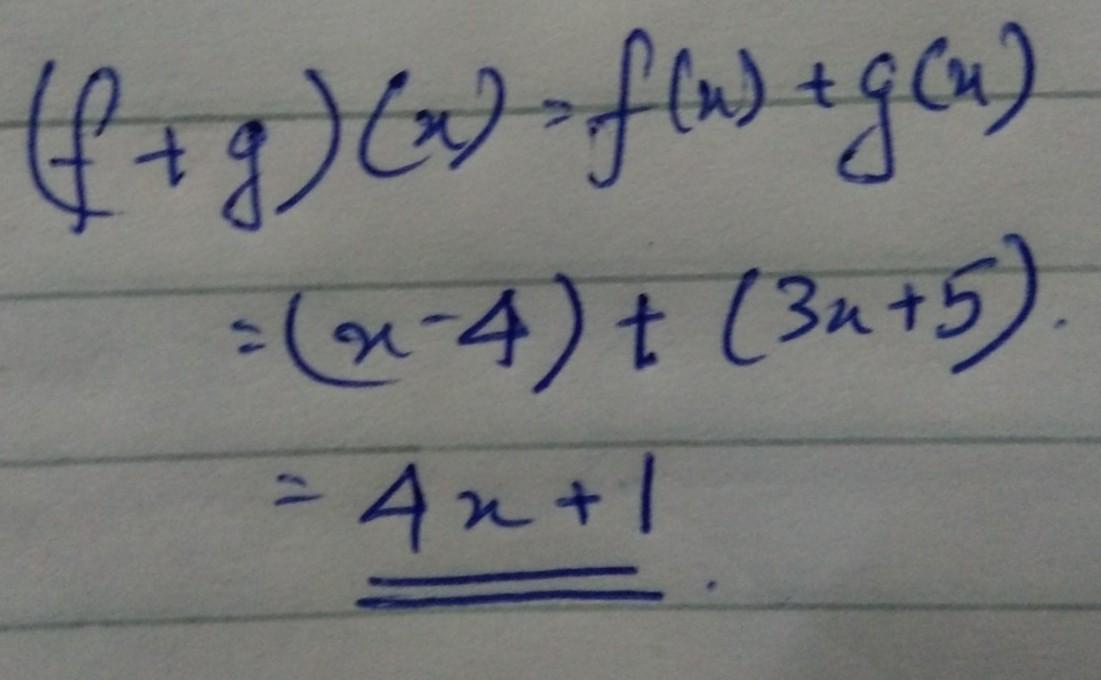 (f+g)(x) = f(x) + g(x)
= (x-4) + (3x+5).
= 4x+1.